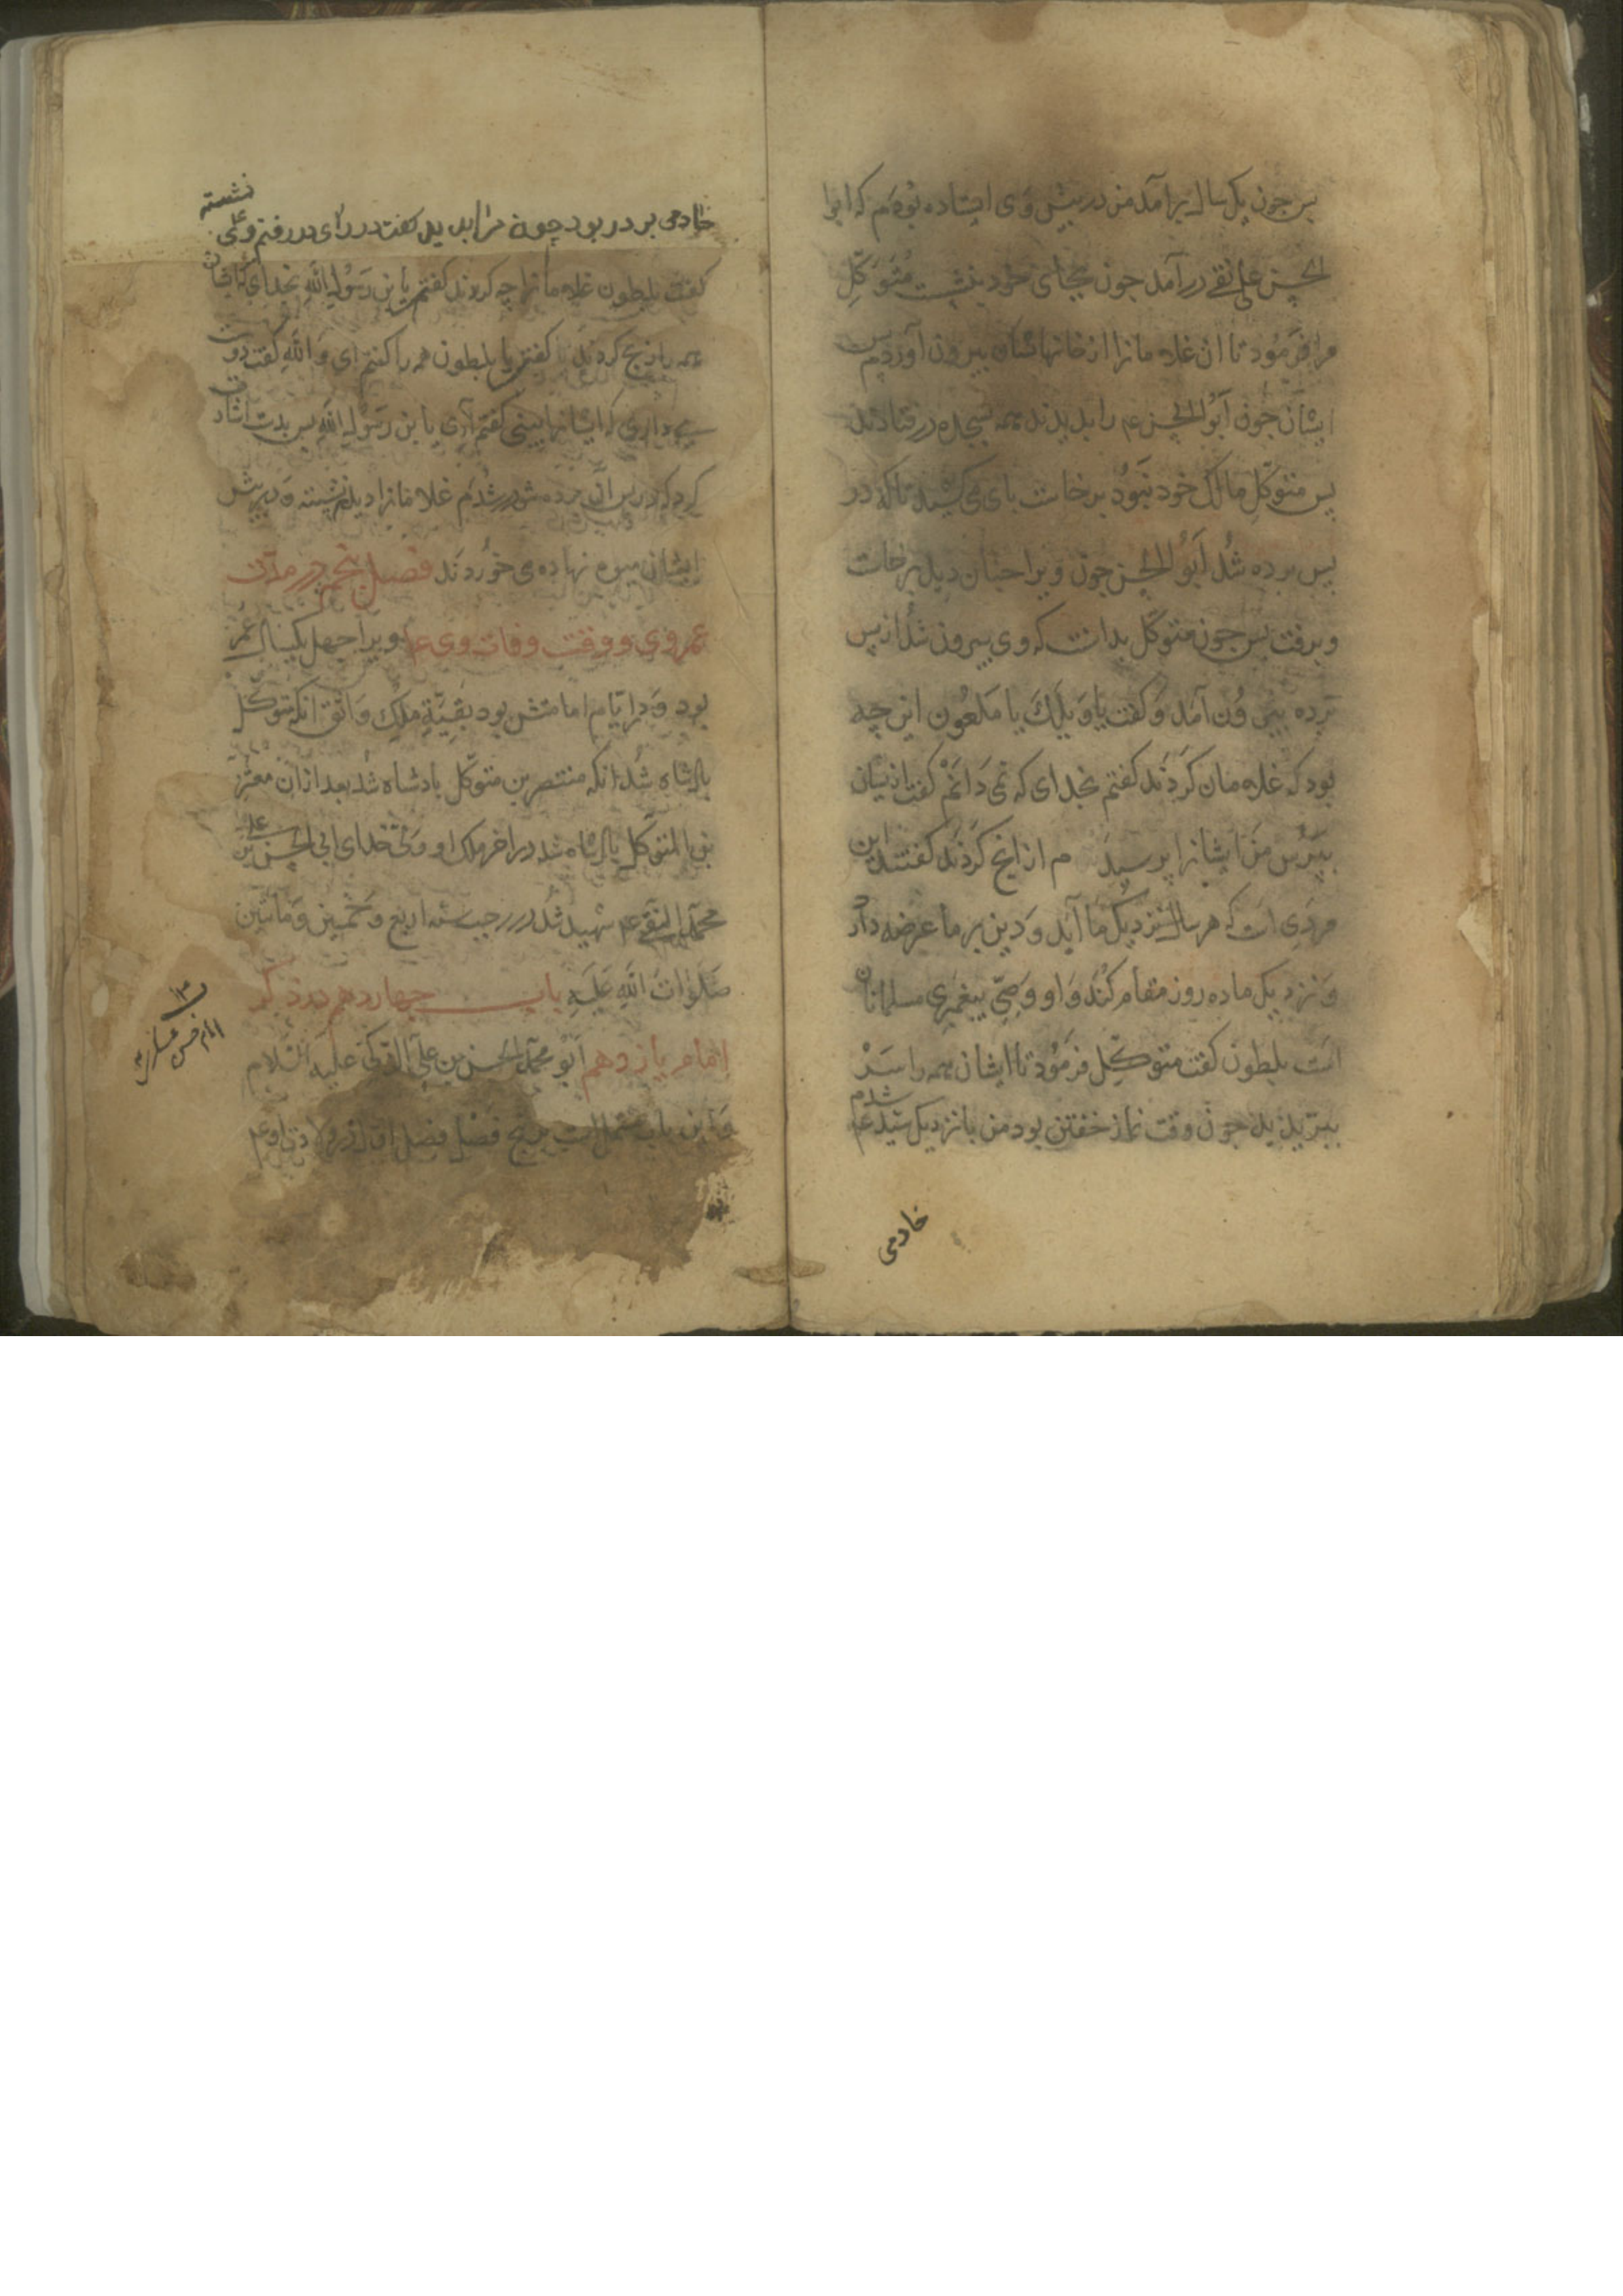 بس جون یک سال برآمد من در پیش وی ایستاده بودم که ابوا
لحسن علی النقی درآمد جون بجای خود بنشست متوکل
مرا فرمود تا آن غلامانرا از خانهاشان بیرون آوردم بس
ایشان جون ابوالحسن عم را بدیدند همه بسجده در فتادند
بس متوکل مالک خود نبود برخاست بای می کشید تا که در
بس برده شد ابوالحسن جون ویرا جنان دید برخاست
و برفت بس جون متوکل بدانست که وی بیرون شد از بس
برده بیرون آمد و گفت یا ویلک یا ملعون این چه
بود که غلامان کردند گفتم بخدای که نمی دانم گفت ازیشان
ببرس من ایشانرا پرسیدم از انج کردند گفتند این
مردی است که هر سال نزدیک ما آید و دین بر ما عرضه دارد
و نزدیک ما ده روز مقام کند و او وصی بیغمبری مسلمانان
است بلطون گفت متوکل فرمود تا ایشان همه را سر
ببریدند جون وقت نماز خفتن بود من بانزدیک سید عم شدم
خادمی
خادمی بر در بود چون مرا بدید گفت در رای در رفتم وی نشسته
گفت بلطون غلامانرا چه کردند گفتم یا بن رسول الله بخدای که ایشان
همه باذبح کردند گفت یا بلطون همه را گفتم ای والله گفت دوست
می داری که ایشانرا بینی گفتم آری یا بن رسول الله بس بدست اشارت
کرد که در بس آن برده شو در شدم غلامانرا دیدم نشسته و در پیش
ایشان میوه نهاده می خوردند فصل پنجم در مدت
عمر وی و وقت وفات وی عم ویرا جهل یکسال عمر
بود و در ایام امامتش بود بقیة ملک واثق انکه متوکل
بادشاه شد انکه منتصر بن متوکل بادشاه شد بعد ازان معتز
بن المتوکل بادشاه شد در اخر ملک او ولی خدای ابی الحسن علی بن
محمد النقی عم شهید شد در رجب سنه اربع و خمسین و مائتین
صلوات الله علیه باب چهاردهم در ذکر
امام یازدهم ابو محمد الحسن بن علی الزکی علیه السلام
و این باب مشتمل است بر پنج فصل فصل اول در ولادت او عم
امام حسن عسکری